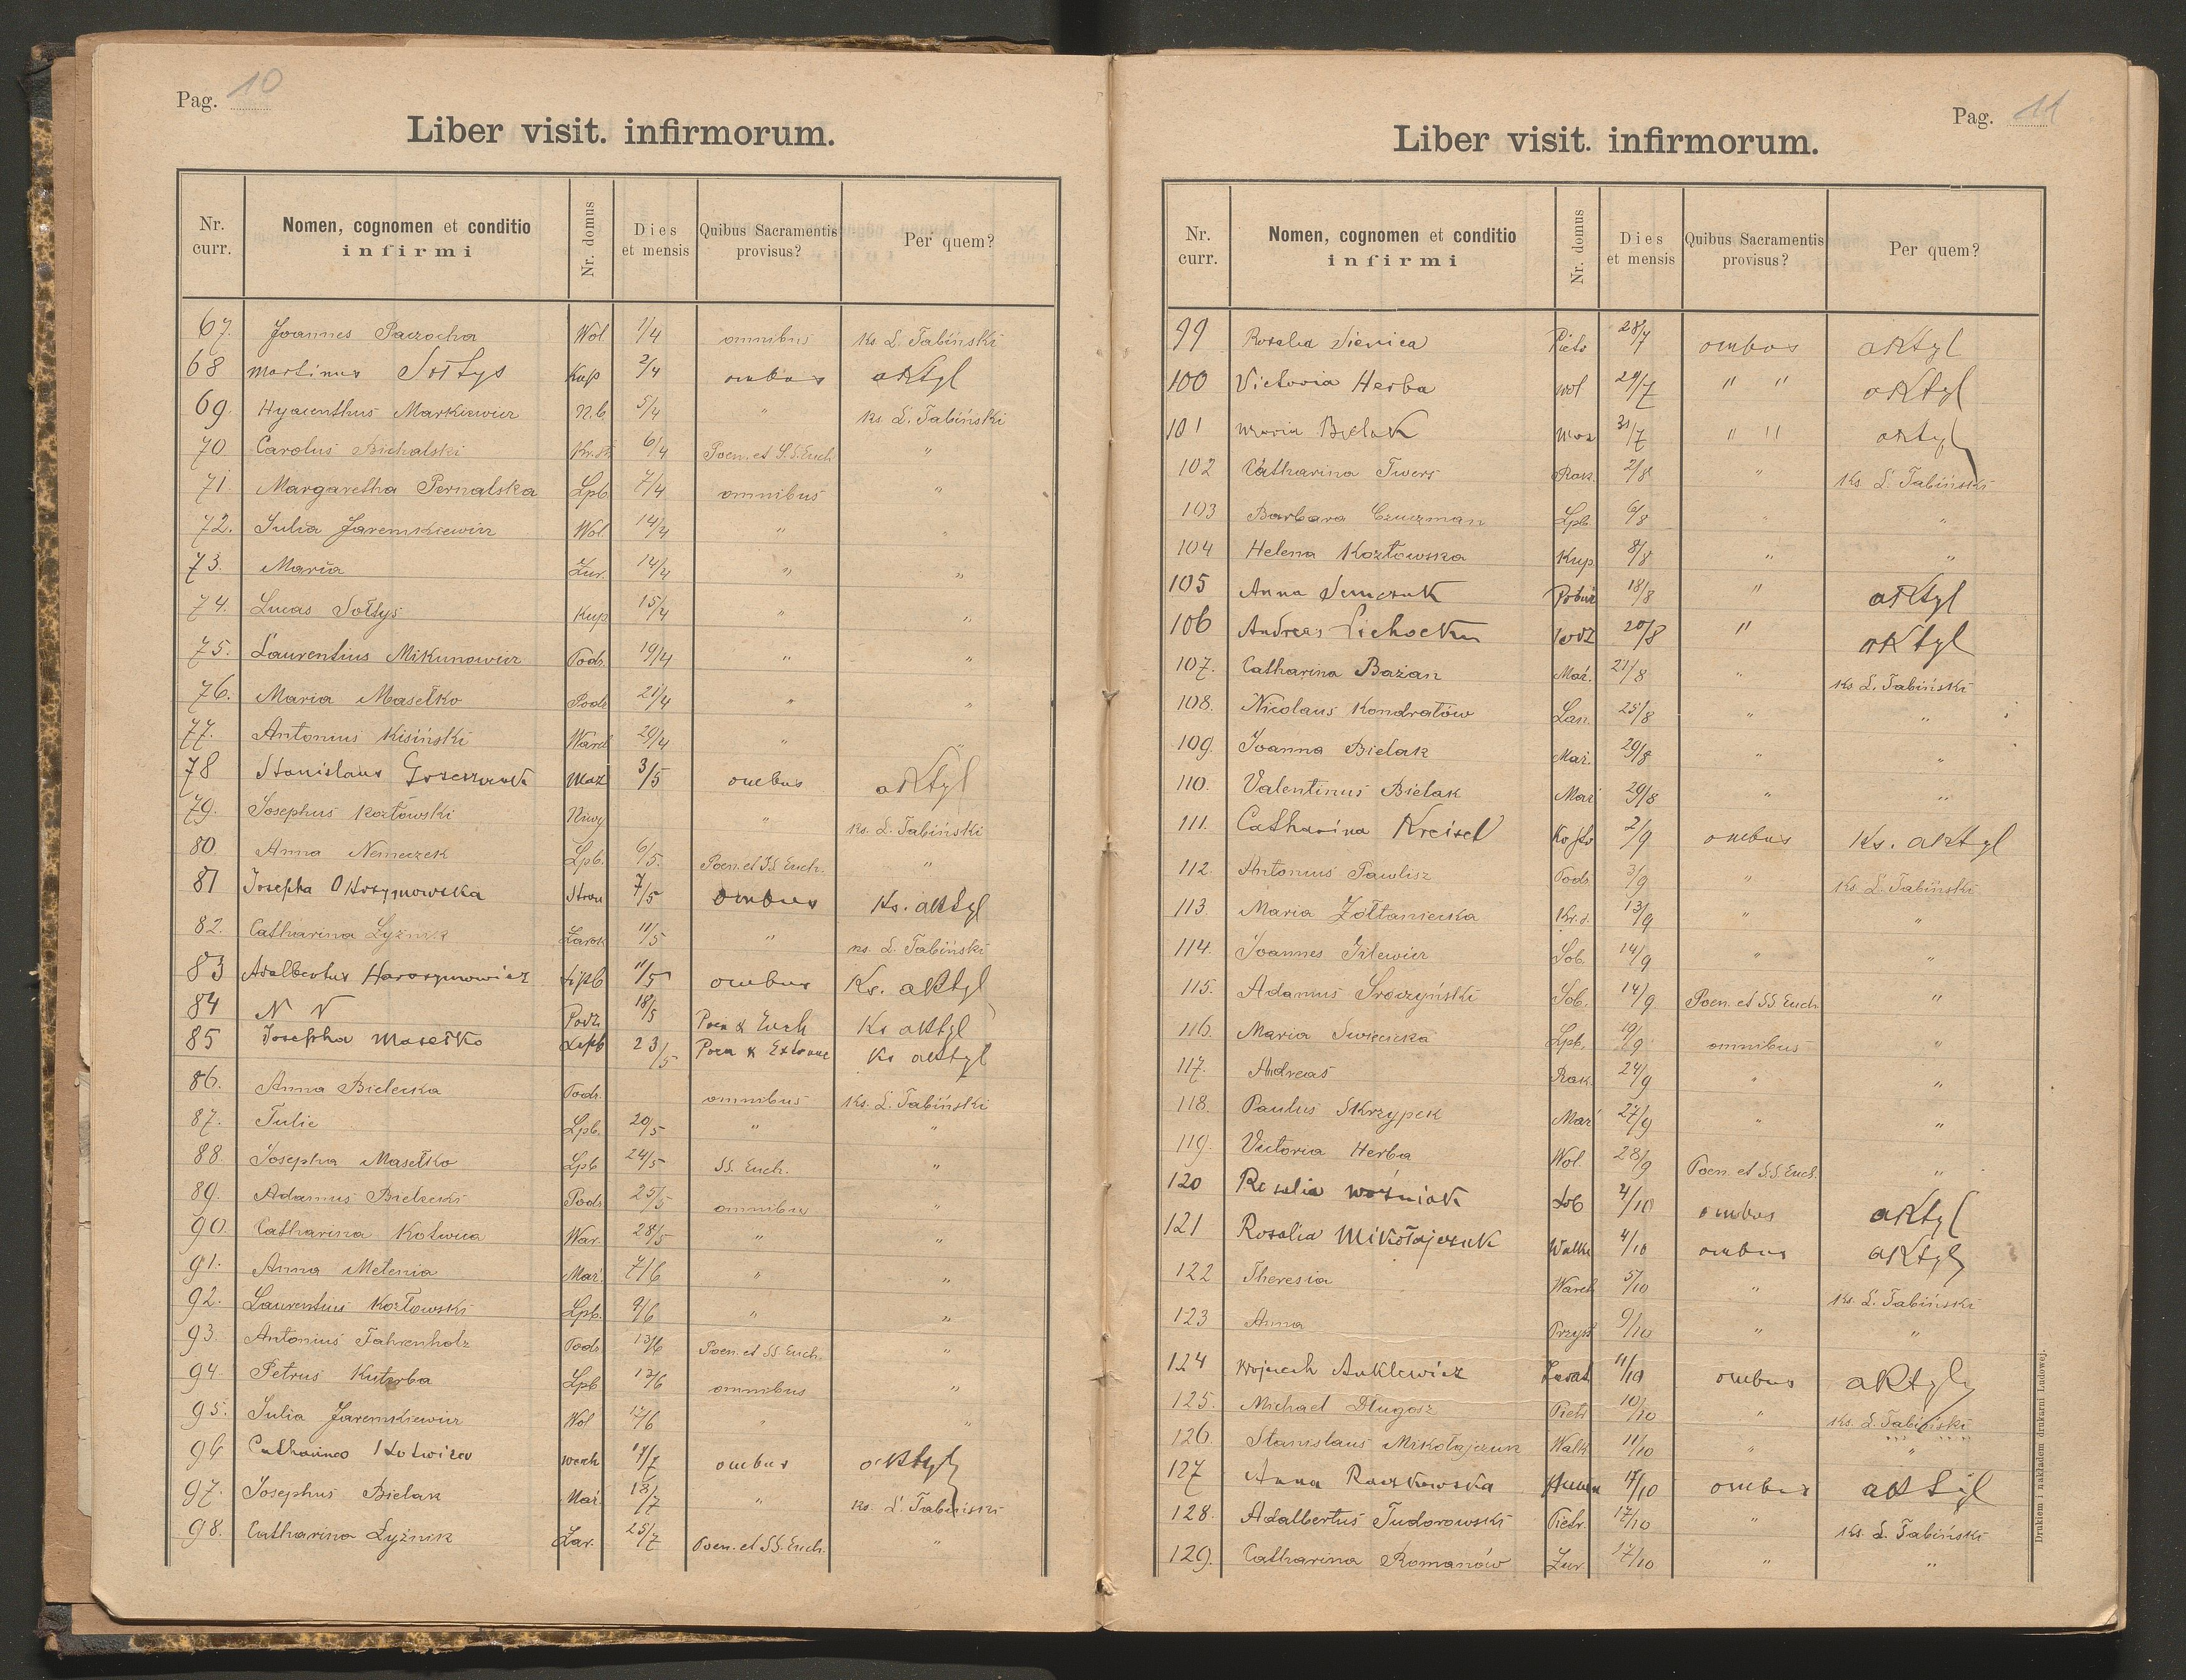 Pag. 10
Liber visit. infirmorum.
Nr. curr. Nomen, cognomen et conditio infirmi Nr. domus Dies et mensis Quibus Sacramentis provisus? Per quem?
67. Joannes Paczocha Wol 1/4 omnibus ks. L. Tabiński
68 Martinus Sołtys Kup 2/4 ombus aktyl
69. Hyacinthus Markiewicz N.b. 5/4 " ks. L. Tabiński
70. Carolus Bichalski 6/4 Poen. et S.S. Euch "
71. Margaretha Pernalska Lpb 7/4 omnibus "
72. Julia Jaremkiewicz Wol. 14/4 " "
73. Maria Żur. 14/4 " "
74. Lucas Sołtys Kup 15/4 " "
75. Laurentius Mikunowicz Pods. 19/4 " "
76. Maria Masełko Pods 21/4 " "
77. Antonius Kisiński Warel 29/4 " "
78 Stanislaus Maz 3/5 ombus aktyl
79. Josephus Kozłowski Niwy " ks. L. Tabiński
80. Anna Nemeczek Lpb. 6/5. Poen. et SS. Euch. "
81 Josepha Okrzymowska Stron 7/5 ombus Ks. aktyl
82. Catharina Łyżnik Zarok 11/5 " ks. L. Tabiński
83 Adalbertus Harasymowicz Lipb 11/5 ombus Ks. aktyl
84 N N Podz 18/5 Poen & Euch Ks aktyl
85 Josepha Masełko Lipb 23/5 Poen & Extreme Ks aktyl
86. Anna Bielecka Pods. omnibus ks. L. Tabiński
87. Julie Lpb. 20/5 " "
88. Josepha Masełko Lpb 24/5 SS. Euch. "
89. Adamus Bielecki Pods 25/5 omnibus "
90. Catharina Kotwica War. 28/5 " "
91. Anna Metenia Maź. 7/6 " "
92. Laurentius Kozłowski Lpb. 9/6 " "
93. Antonius Fahrenholz Pods 13/6 Poen. et SS. Euch. "
94. Petrus Kuterba Lpb 13/6 omnibus "
95. Julia Jaremkiewicz Wol 17/6 " "
96 Catharina Kotwica warch 11/7 ombus aktyl
97. Josephus Bielak Maź. 13/7 " ks. L. Tabiński
98. Catharina Łyżnik Zar. 25/7 Poen. et SS. Euch. "
Pag. 11
Liber visit. infirmorum.
Nr. curr. Nomen, cognomen et conditio infirmi Nr. domus Dies et mensis Quibus Sacramentis provisus? Per quem?
99 Rosalia Sienica Pietr 28/7 ombus aktyl
100 Victoria Herba wol 29/7 " " aktyl
101 Maria Bielak Maz 31/7 " " aktyl
102 Catharina Twers Rak. 2/8 " Ks. L. Tabiński
103 Barbara Czuczman Lpb 6/8 " "
104 Helena Kozłowska Kup. 8/8 " "
105 Anna Semczuk Pobuż 18/8 " aktyl
106 Andreas Podz 20/8 " aktyl
107. Catharina Bażan Maź. 21/8 " ks L. Tabiński
108. Nicolaus Kondratów Lan. 25/8 " "
109. Joanna Bielak Maź. 29/8 " "
110. Valentinus Bielak Maź 29/8 " "
111. Catharina Kreisel 2/9 ombus Ks. aktyl
112. Antonius Pawlisz Pods 3/9 " Ks. L. Tabiński
113. Maria Żółtaniecka 13/9 " "
114. Joannes Irlewicz Sob. 14/9 " "
115. Adamus Sroczyński Sob. 14/9. Poen. et SS Euch. "
116. Maria Swięcicka Lpb. 19/9 omnibus "
117. Andreas Rak. 24/9 " "
118. Paulus Skrzypek Maź 27/9 " "
119. Victoria Herba Wol. 28/9 Poen. et S.S. Euch. "
120 Rosalia Woźniak Sob 4/10 ombus aktyl
121 Rosalia Mikołajczuk Walka 4/10 ombus aktyl
122 Theresia Warch 5/10 " ks. L. Tabiński
123 Anna Przyst 9/10 " "
124 Wojciech Auklewicz 11/10 ombus aktyl
125. Michael Długosz Pietr 10/10 " ks. L. Tabiński
126. Stanislaus Mikołajczuk Walk 11/10 " "
127 Anna Raczkowska 17/10 ombus aktyl
128. Adalbertus Tudorowski Pietr. 17/10 " ks. L. Tabiński
129. Catharina Romanów Żur 17/10 " "
Drukiem i nakładem drukarni Ludowej.